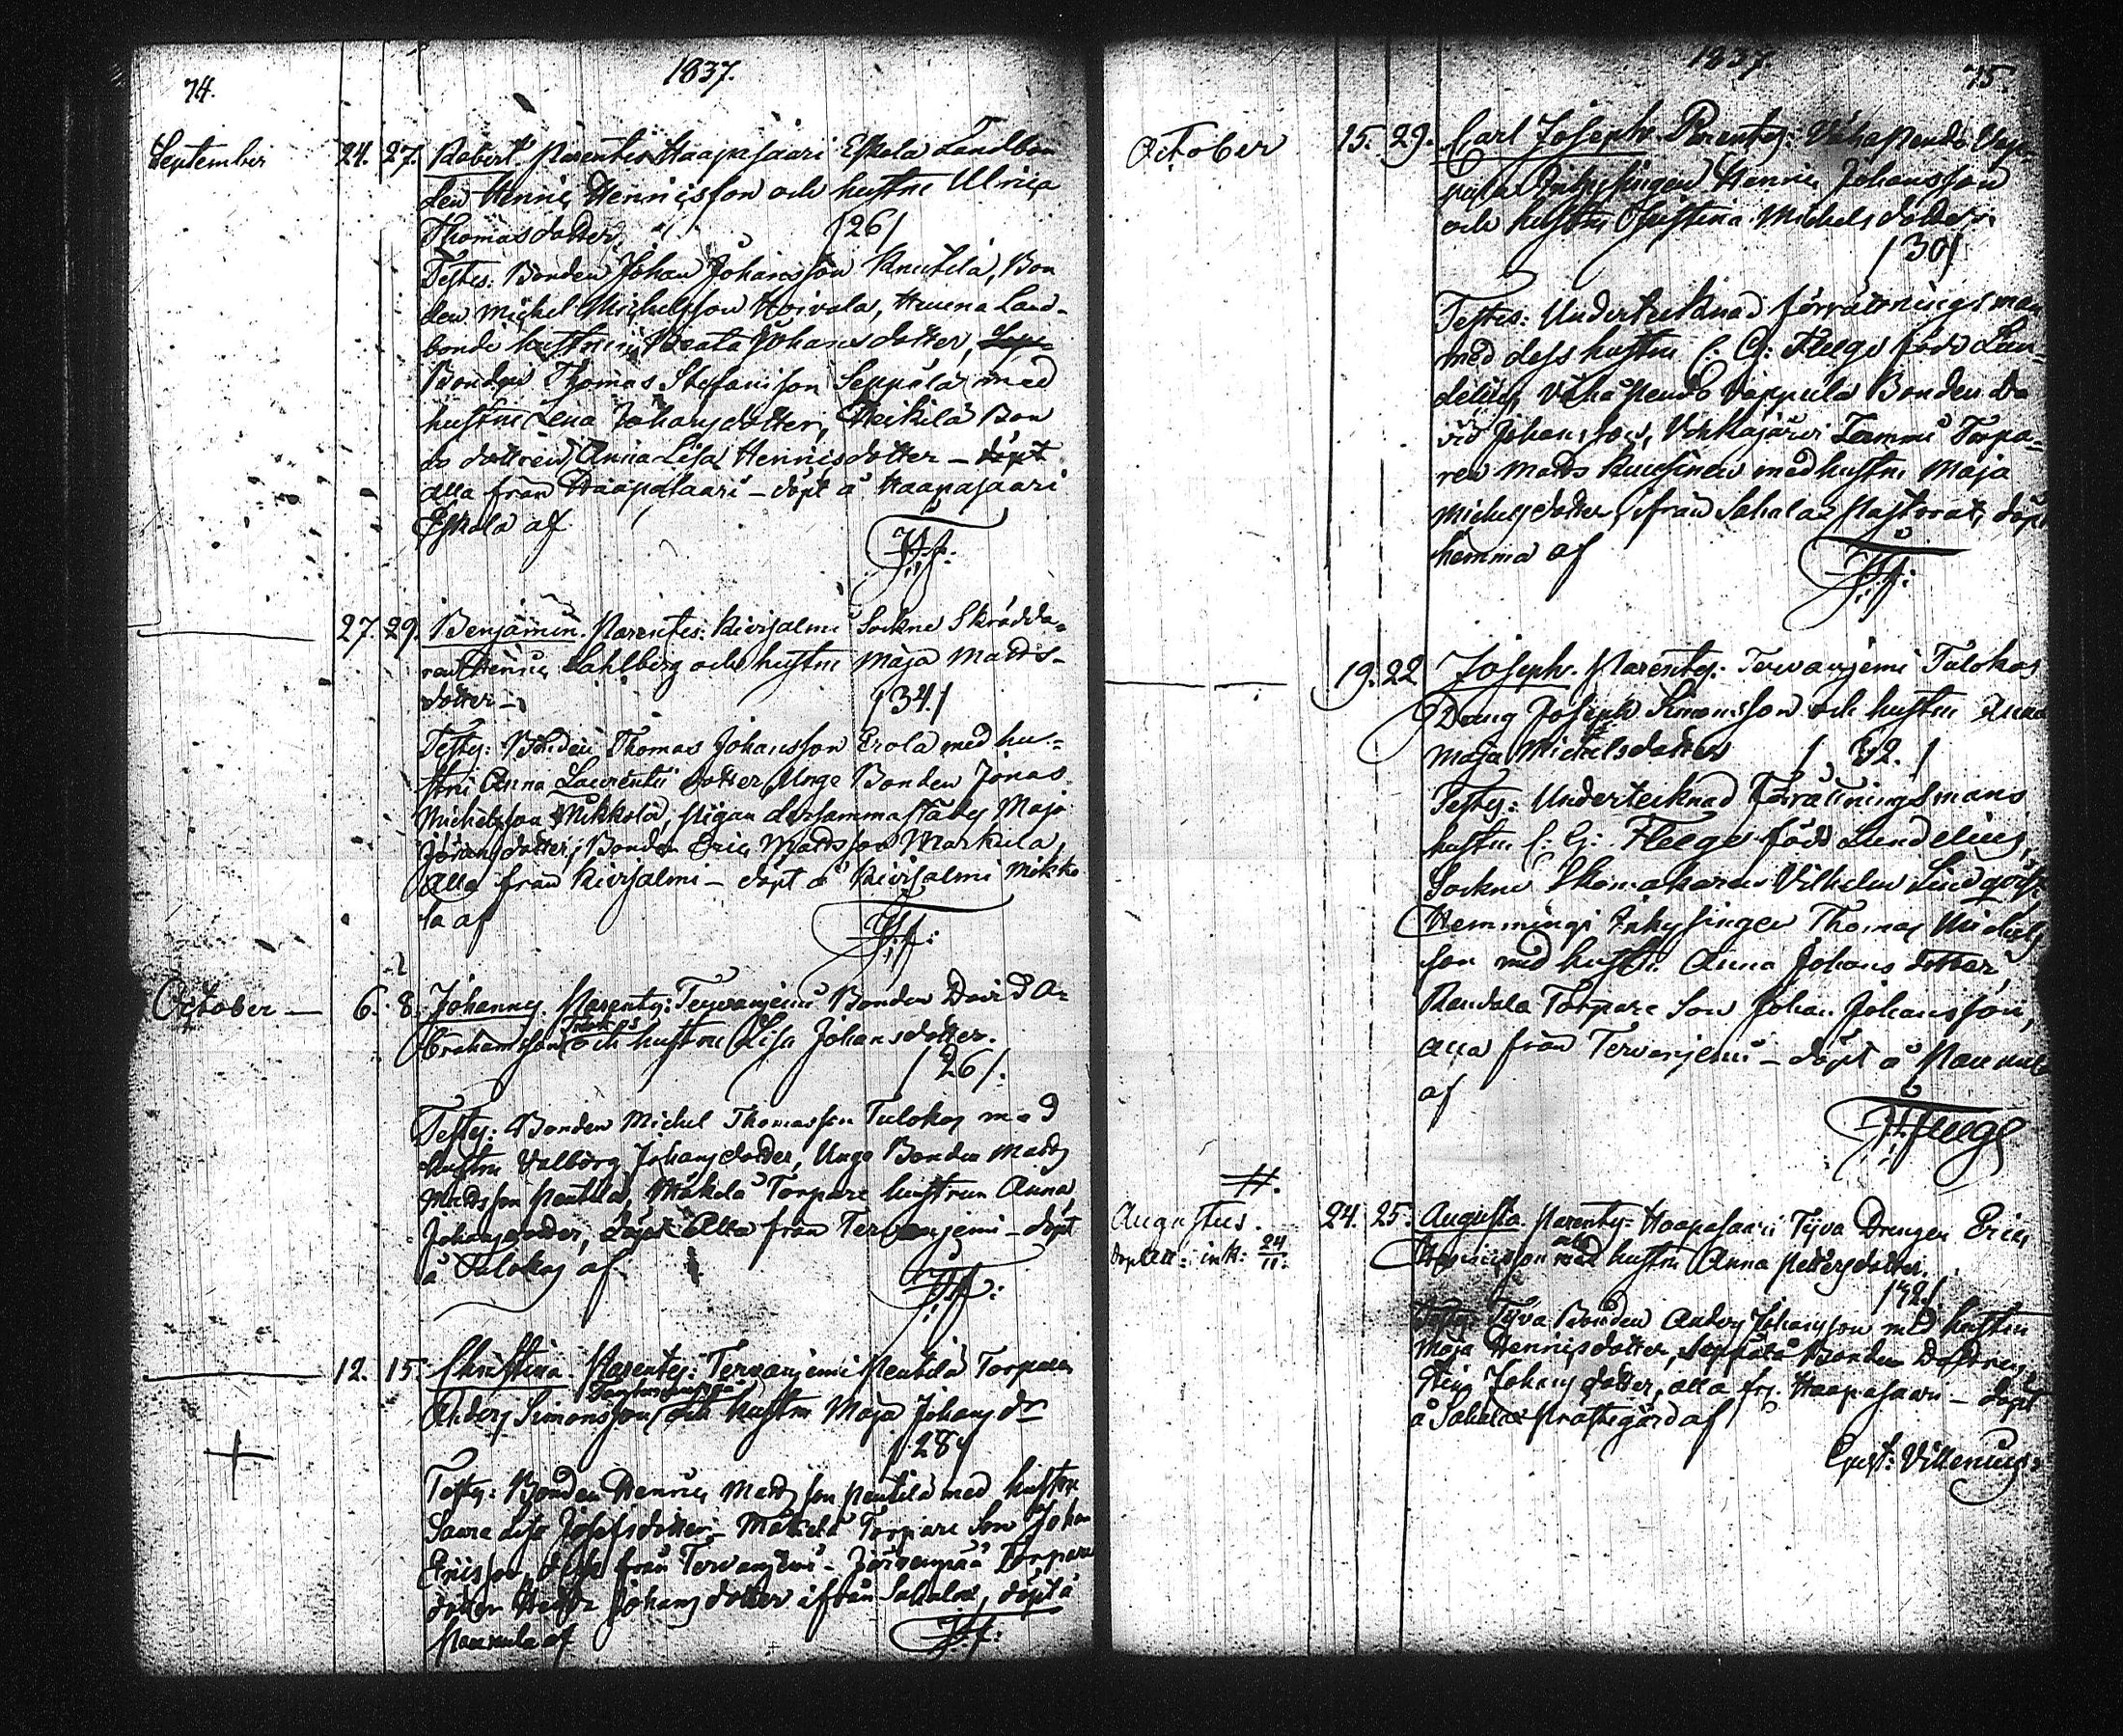 74.
1837.
September 24. 27. Robert. Parentes Haapasaari Eskola Landbon
den Henric Henricsson och hustru Ulrica
Thomasdotter. /26/
Testes: Bonden Johan Johansson Knutila, Bon
den Michel Michelsson Hoivala, Land-
bonde hustrun Beata Johansdotter,
Bonden Thomas Stefansson Seppälä med
hustru Lena Johansdotter, Heikkilä Bon
de dottren Anna Lisa Henricsdotter – döpt
alla från Haapasaari – döpt å Haapasaari
Eskola af
27. 29. Benjamin. Parentes: Kivisalmi Sockne Skrädda=
ren Henric Sahlberg och hustru Maja Matts-
dotter – /34/
Testes: Bonden Thomas Johansson Erola med hu=
stru Anna Laurentii dotter, Unge Bonden Jonas
Michelsson Mikkola, pigan dersammastädes Maja
Jöransdotter, Bonden Eric Mattsson Markula,
alla från Kivisalmi – döpt å Kivisalmi Mikko
la af
October – 6. 8. Johannes. Parentes: Tervaniemi Bonden David A=
brahamsson och hustru Lisa Johansdotter.
/26/.
Testes: Bonden Michel Thomasson Tulokas med
hustru Valborg Johansdotter, Unge Bonden Matts
Mattsson Pentilä, Mäkelä Torpare hustrun Anna
Johansdotter, döpt Alla från Tervaniemi – döpt
å Tulokas af
12. 15. Christina. Parentes: Tervaniemi Pentilä Torparen
Anders Simonsson och hustru Maja Johans dr
/28/
+
Testes: Bonden Henric Mattsson Pentilä med hustru
Saara Lisa Josefsdotter – Mäkelä Torpare Son Johan
Ericsson, från Tervaniemi – Järvenpää Torpare
dotter Johansdotter ifrån Sahalax, döpt å
af
1837.
75.
October 15. 29. Carl Joseph. Parentes: Vähäpento Vap=
pula Inhysingen Henric Johansson
och hustru Christina Michelsdotter.
/30/
Testes: Undertecknad förrättningsman
med dess hustru C. G. Fleege född Lun=
delius, Vähäpento Vappula Bonden Da
vid Johansson, Vehkajärvi Lammi Torpa=
ren Matts Kuusinen med hustru Maja
Michelsdotter, ifrån Sahalax Pastorat, döpt
hemma af
19. 22. Joseph. Parentes: Tervaniemi Tulokas
Dräng Joseph Simonsson och hustru Anna
Maja Michelsdotter /32./
Testes: Undertecknad förrättningsmans
hustru C: G: Fleege född Lundelius,
Sockne Skomakaren Vilhelm Lindqvist,
Hemmingi Inhysingen Thomas Michels
son med hustru Anna Johansdotter,
Torpare Son Johan Johansson,
alla från Tervaniemi – döpt å
af
Fleege
Augustus. 24. 25. Augusta. Parentes: Haapasaari Tyva Drengen Eric
24/11.
Henricsson och hustru Anna Pettersdotter.
/42/
Testes: Tyva Bonden Anders Johansson med hustru
Maja Henricsdotter, Seppälä Bonden Dottren
Johansdotter, alla frn. Haapasaari – döpt
å Sahalax Prästegård af
Gust: Villenius.